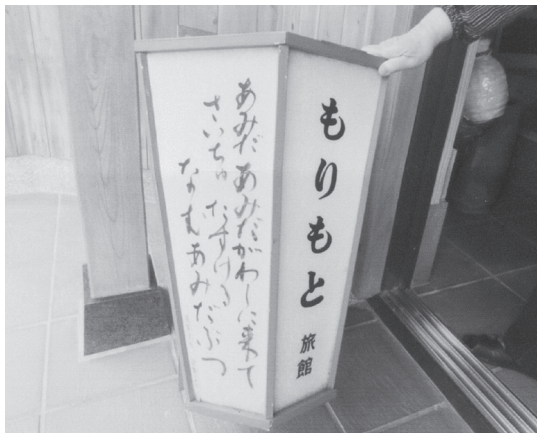 もりもと 旅館
あみだ あみだがわしに来て
さいちをたすける
なむあみだぶつ